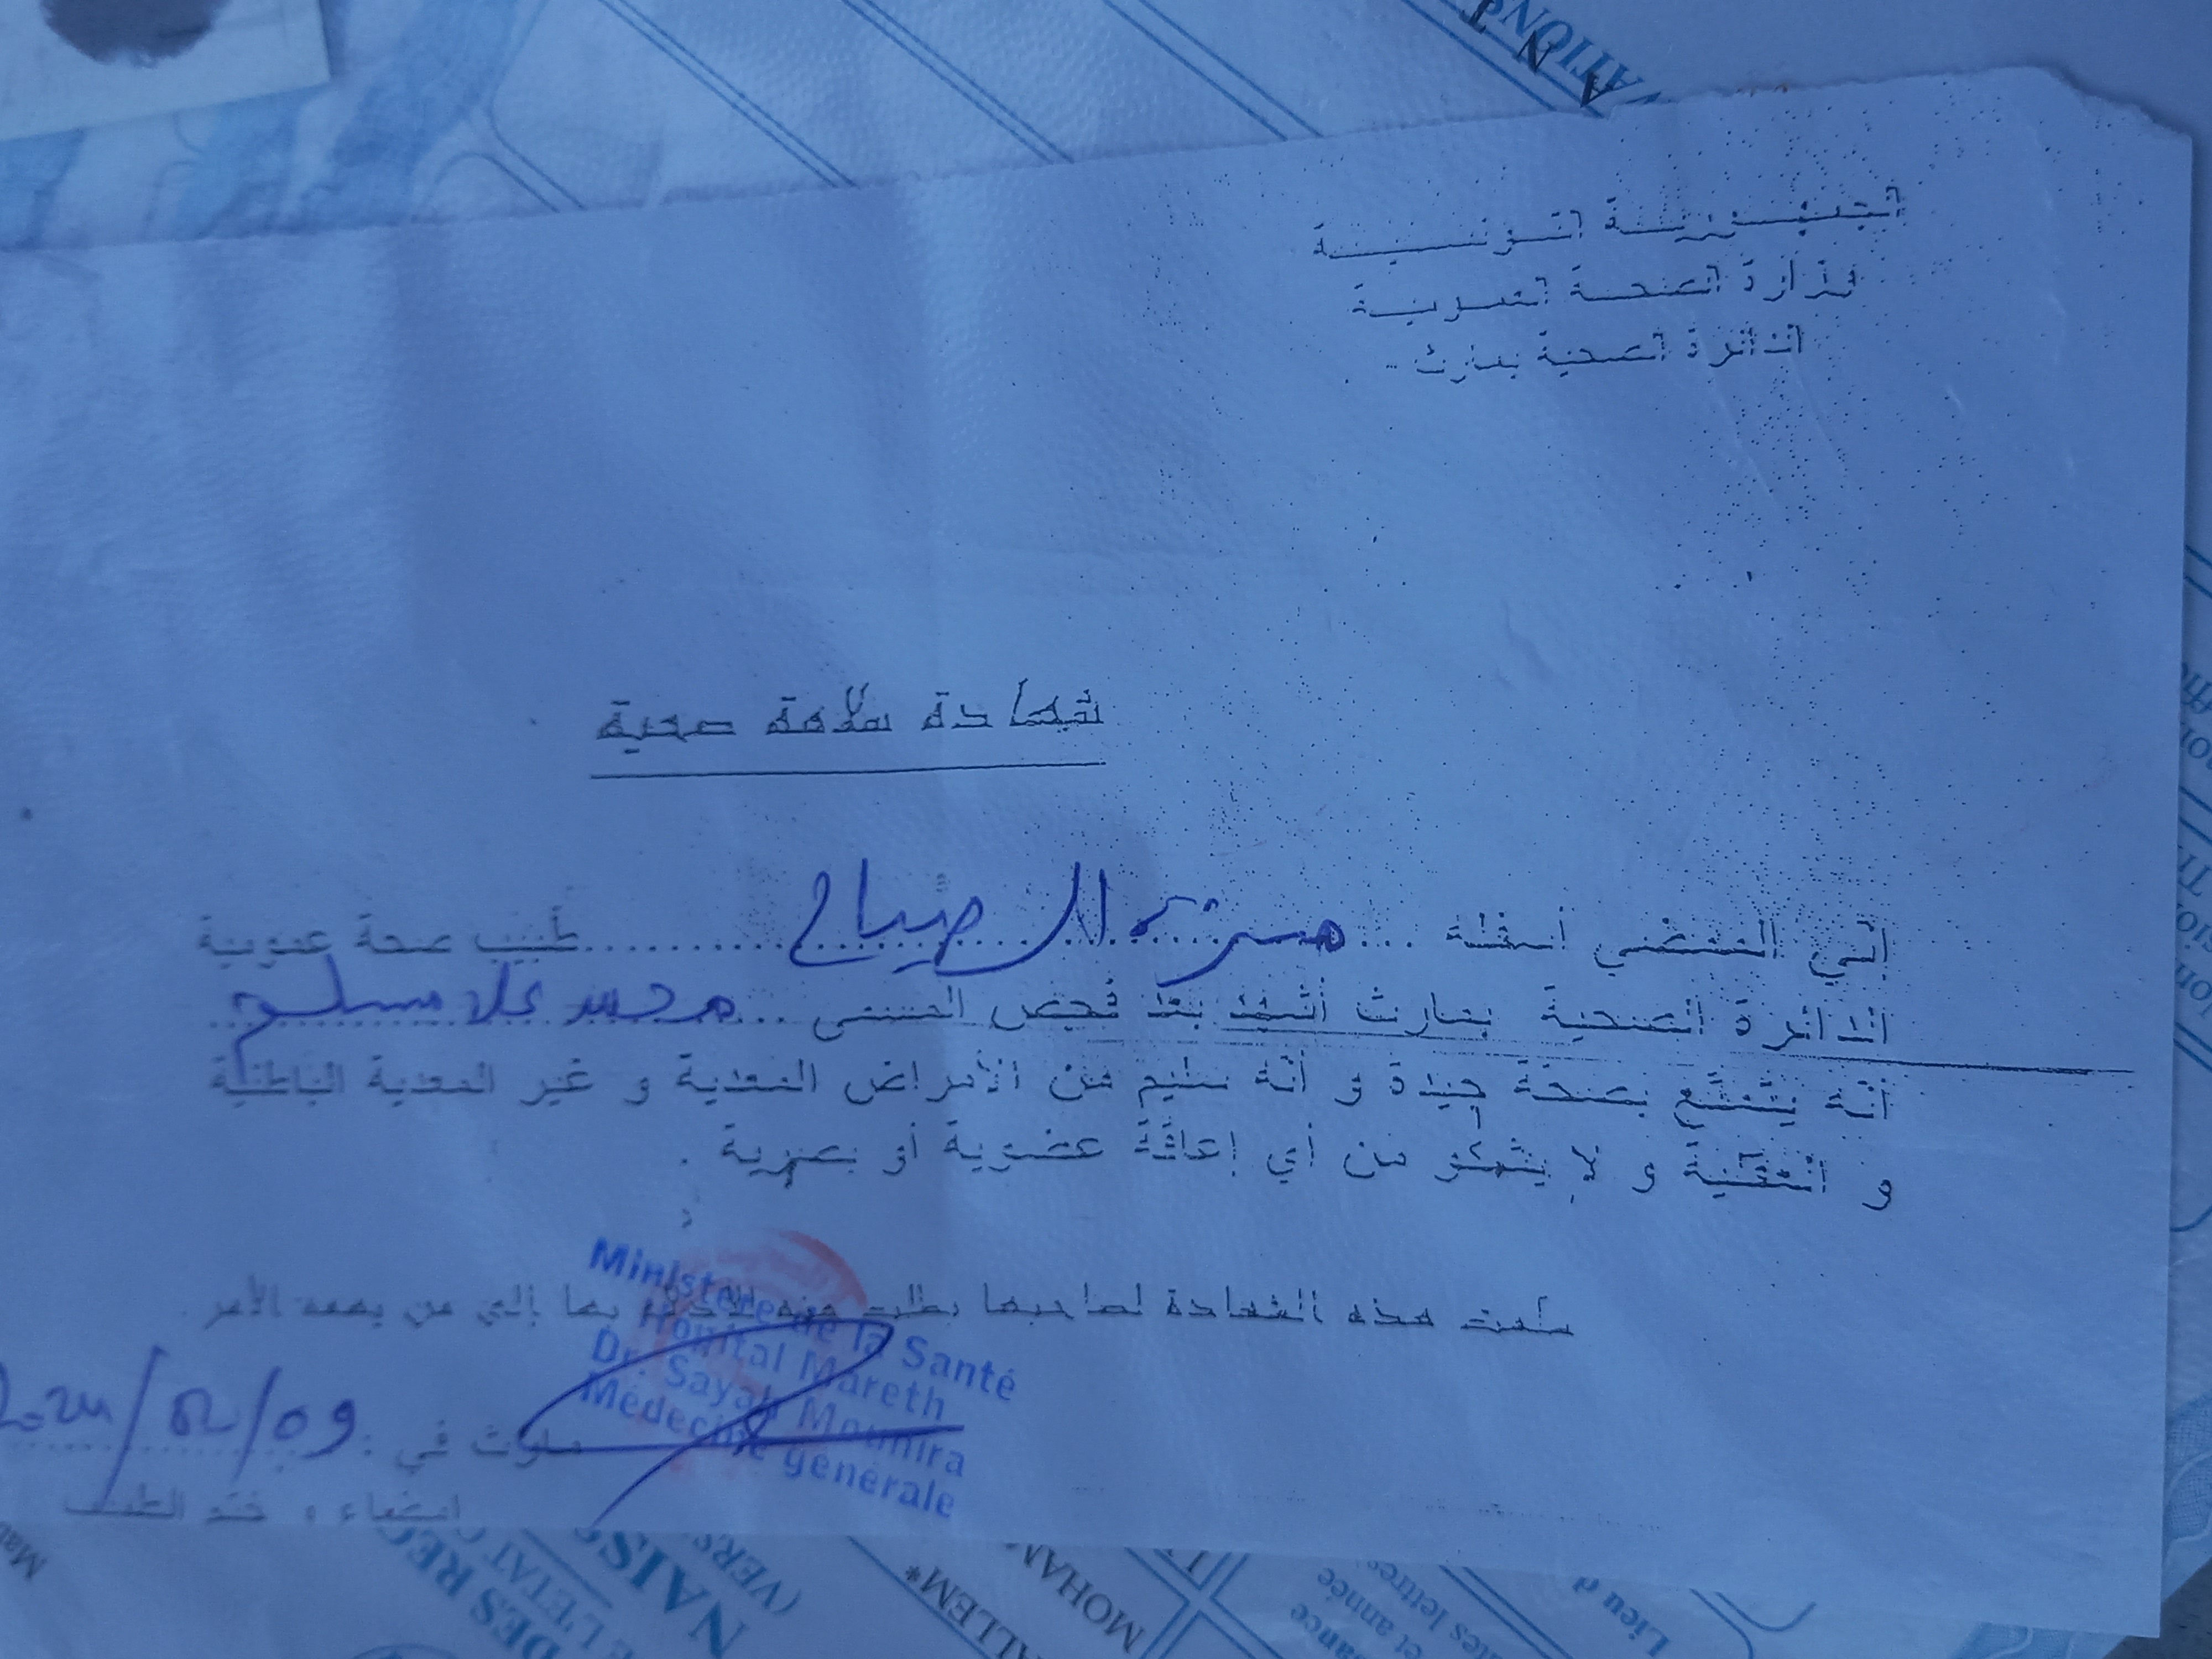 الجمهورية التونسية
وزارة الصحة العمومية
الدائرة الصحية بمارث
شهادة سلامة صحية
إني الممضي أسفله ... الصياح ... طبيب صحة عمومية
الدائرة الصحية بمارث أشهد بعد فحص المسمى ... محمد علا مسلم
أنه يتمتع بصحة جيدة و أنه سليم من الأمراض المعدية و غير المعدية الباطنية
و العقلية و لا يشكو من أي إعاقة عضوية أو بصرية .
سلمت هذه الشهادة لصاحبها بطلب منه للإدلاء بها إلى من يهمه الأمر .
Ministère de la Santé
Hôpital Mareth
Dr. Sayah Mounira
Médecine générale
مارث في : 09/02/
إمضاء و ختم الطبيب
DES REG
L'ETAT C
NAISS
(VERS
ALLEM*
MOHAM
Lieu d
et année